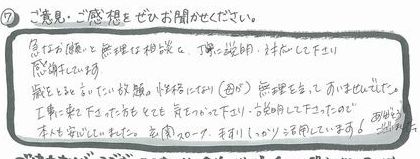 ⑦ ご意見・ご感想をぜひお聞かせください。
急なお願いと無理な相談を、丁寧に説明・対応して下さり
感謝しています
歳をとると言いたい放題。性格になり(母が)無理を言ってすいませんでした。
工事に来て下さった方もとても気をつかって下さり・説明して下さったので
本人も安心していました。玄関スロープ・手すりしっかり活用しています!
ありがとう
ございました